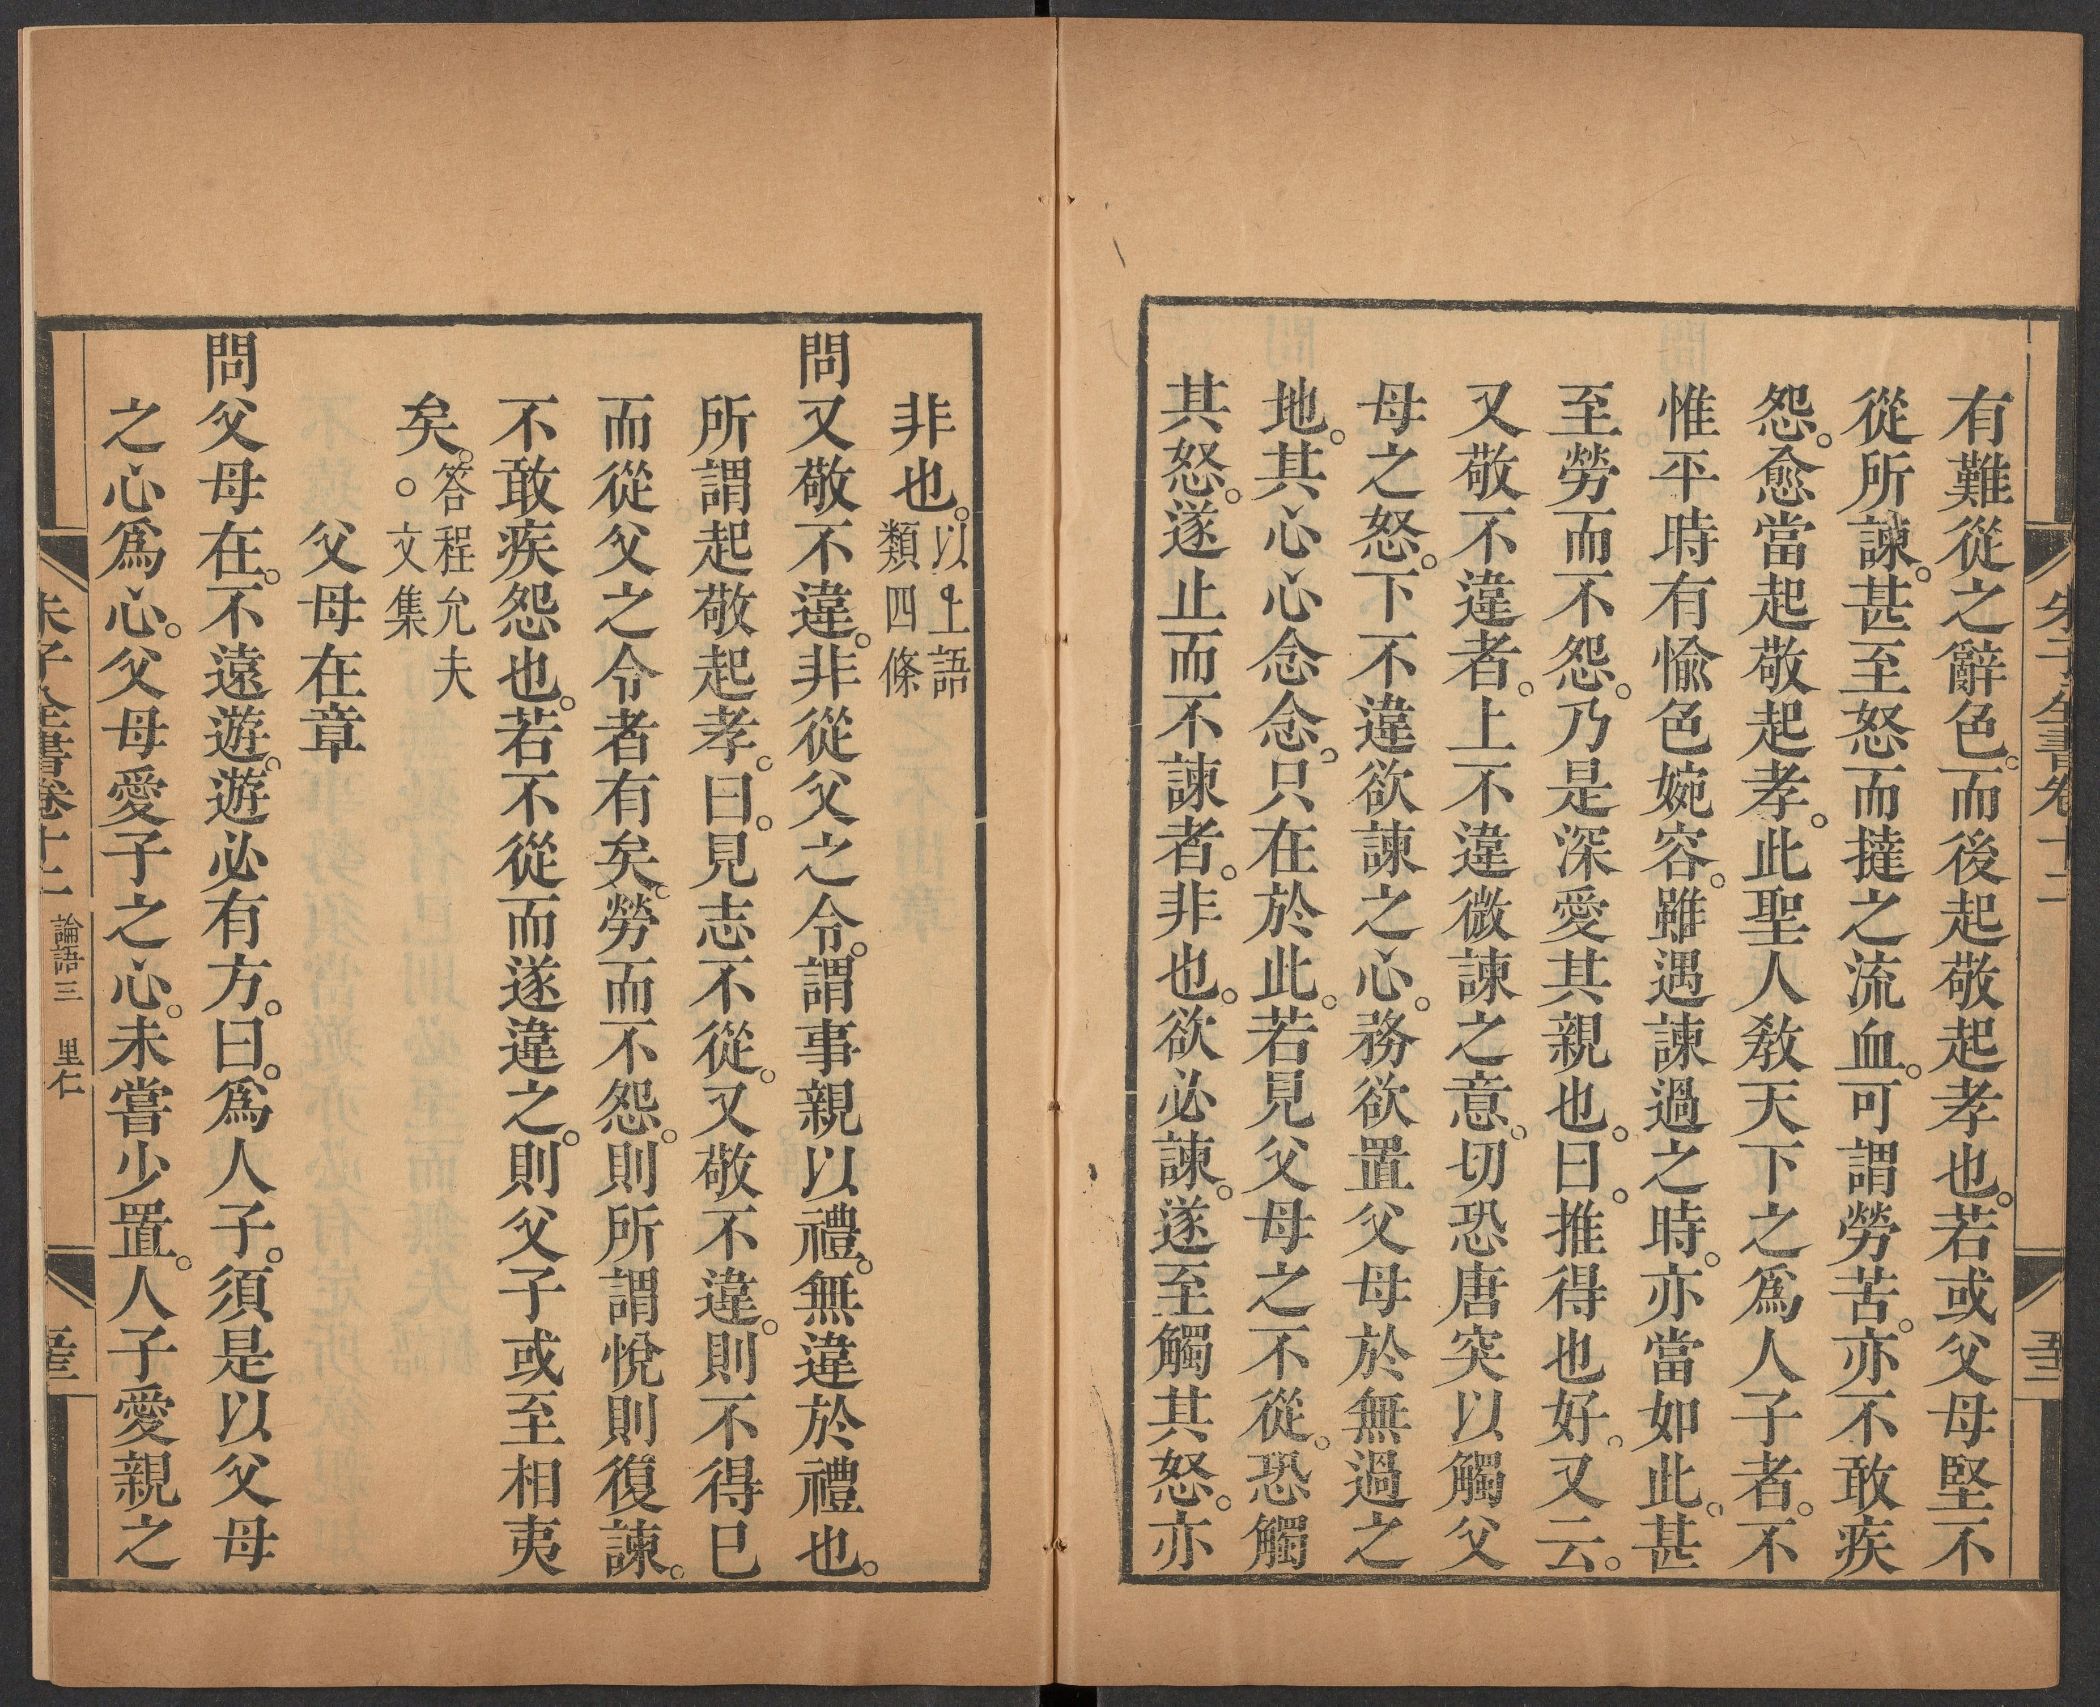 有難從之辭色。而後起敬起孝也。若或父母堅不
從所諫。甚至怒而撻之流血。可謂勞苦。亦不敢疾
怨。愈當起敬起孝。此聖人教天下之爲人子者。不
惟平時有愉色婉容。雖遇諫過之時。亦當如此。甚
至勞而不怨。乃是深愛其親也。曰。推得也好。又云。
又敬不違者。上不違微諫之意。切恐唐突以觸父
母之怒。下不違欲諫之心。務欲置父母於無過之
地。其心心念念。只在於此。若見父母之不從。恐觸
其怒。遂止而不諫者。非也。欲必諫。遂至觸其怒。亦
非也。以上語
類四條
問又敬不違。非從父之令。謂事親以禮。無違於禮也。
所謂起敬起孝。曰。見志不從。又敬不違。則不得已
而從父之令者有矣。勞而不怨。則所謂悅則復諫。
不敢疾怨也。若不從而遂違之。則父子或至相夷
矣。答程允夫
○文集
父母在章
問父母在。不遠遊。遊必有方。曰。爲人子。須是以父母
之心爲心。父母愛子之心。未嘗少置。人子愛親之
朱子全書卷十二 論語三 里仁